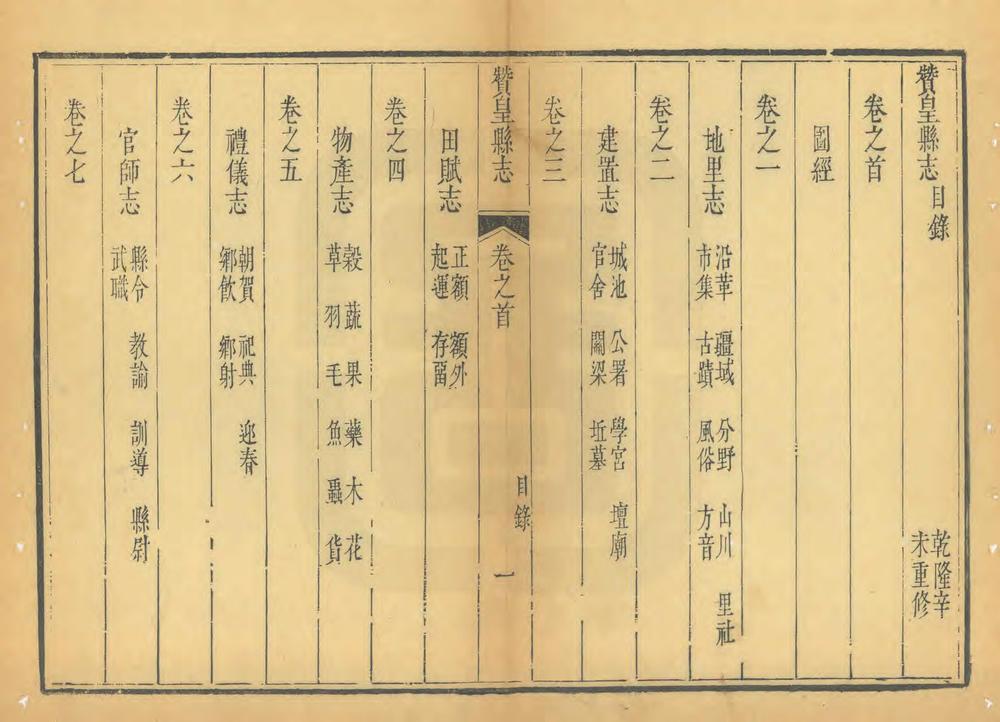 贊皇縣志目錄 乾隆辛
未重修
卷之首
圖經
卷之一
地里志 沿革 疆域 分野 山川 里社
市集 古蹟 風俗 方音
卷之二
建置志 城池 公署 學宮 壇廟
官舍 關梁 坵墓
卷之三
贊皇縣志 卷之首 目錄 一
田賦志 正額 額外
起運 存畱
卷之四
物產志 穀 蔬 果 藥 木 花
草 羽 毛 魚 蟲 貨
卷之五
禮儀志 朝賀 祀典 迎春
鄉飲 鄉射
卷之六
官師志 縣令 教諭 訓導 縣尉
武職
卷之七